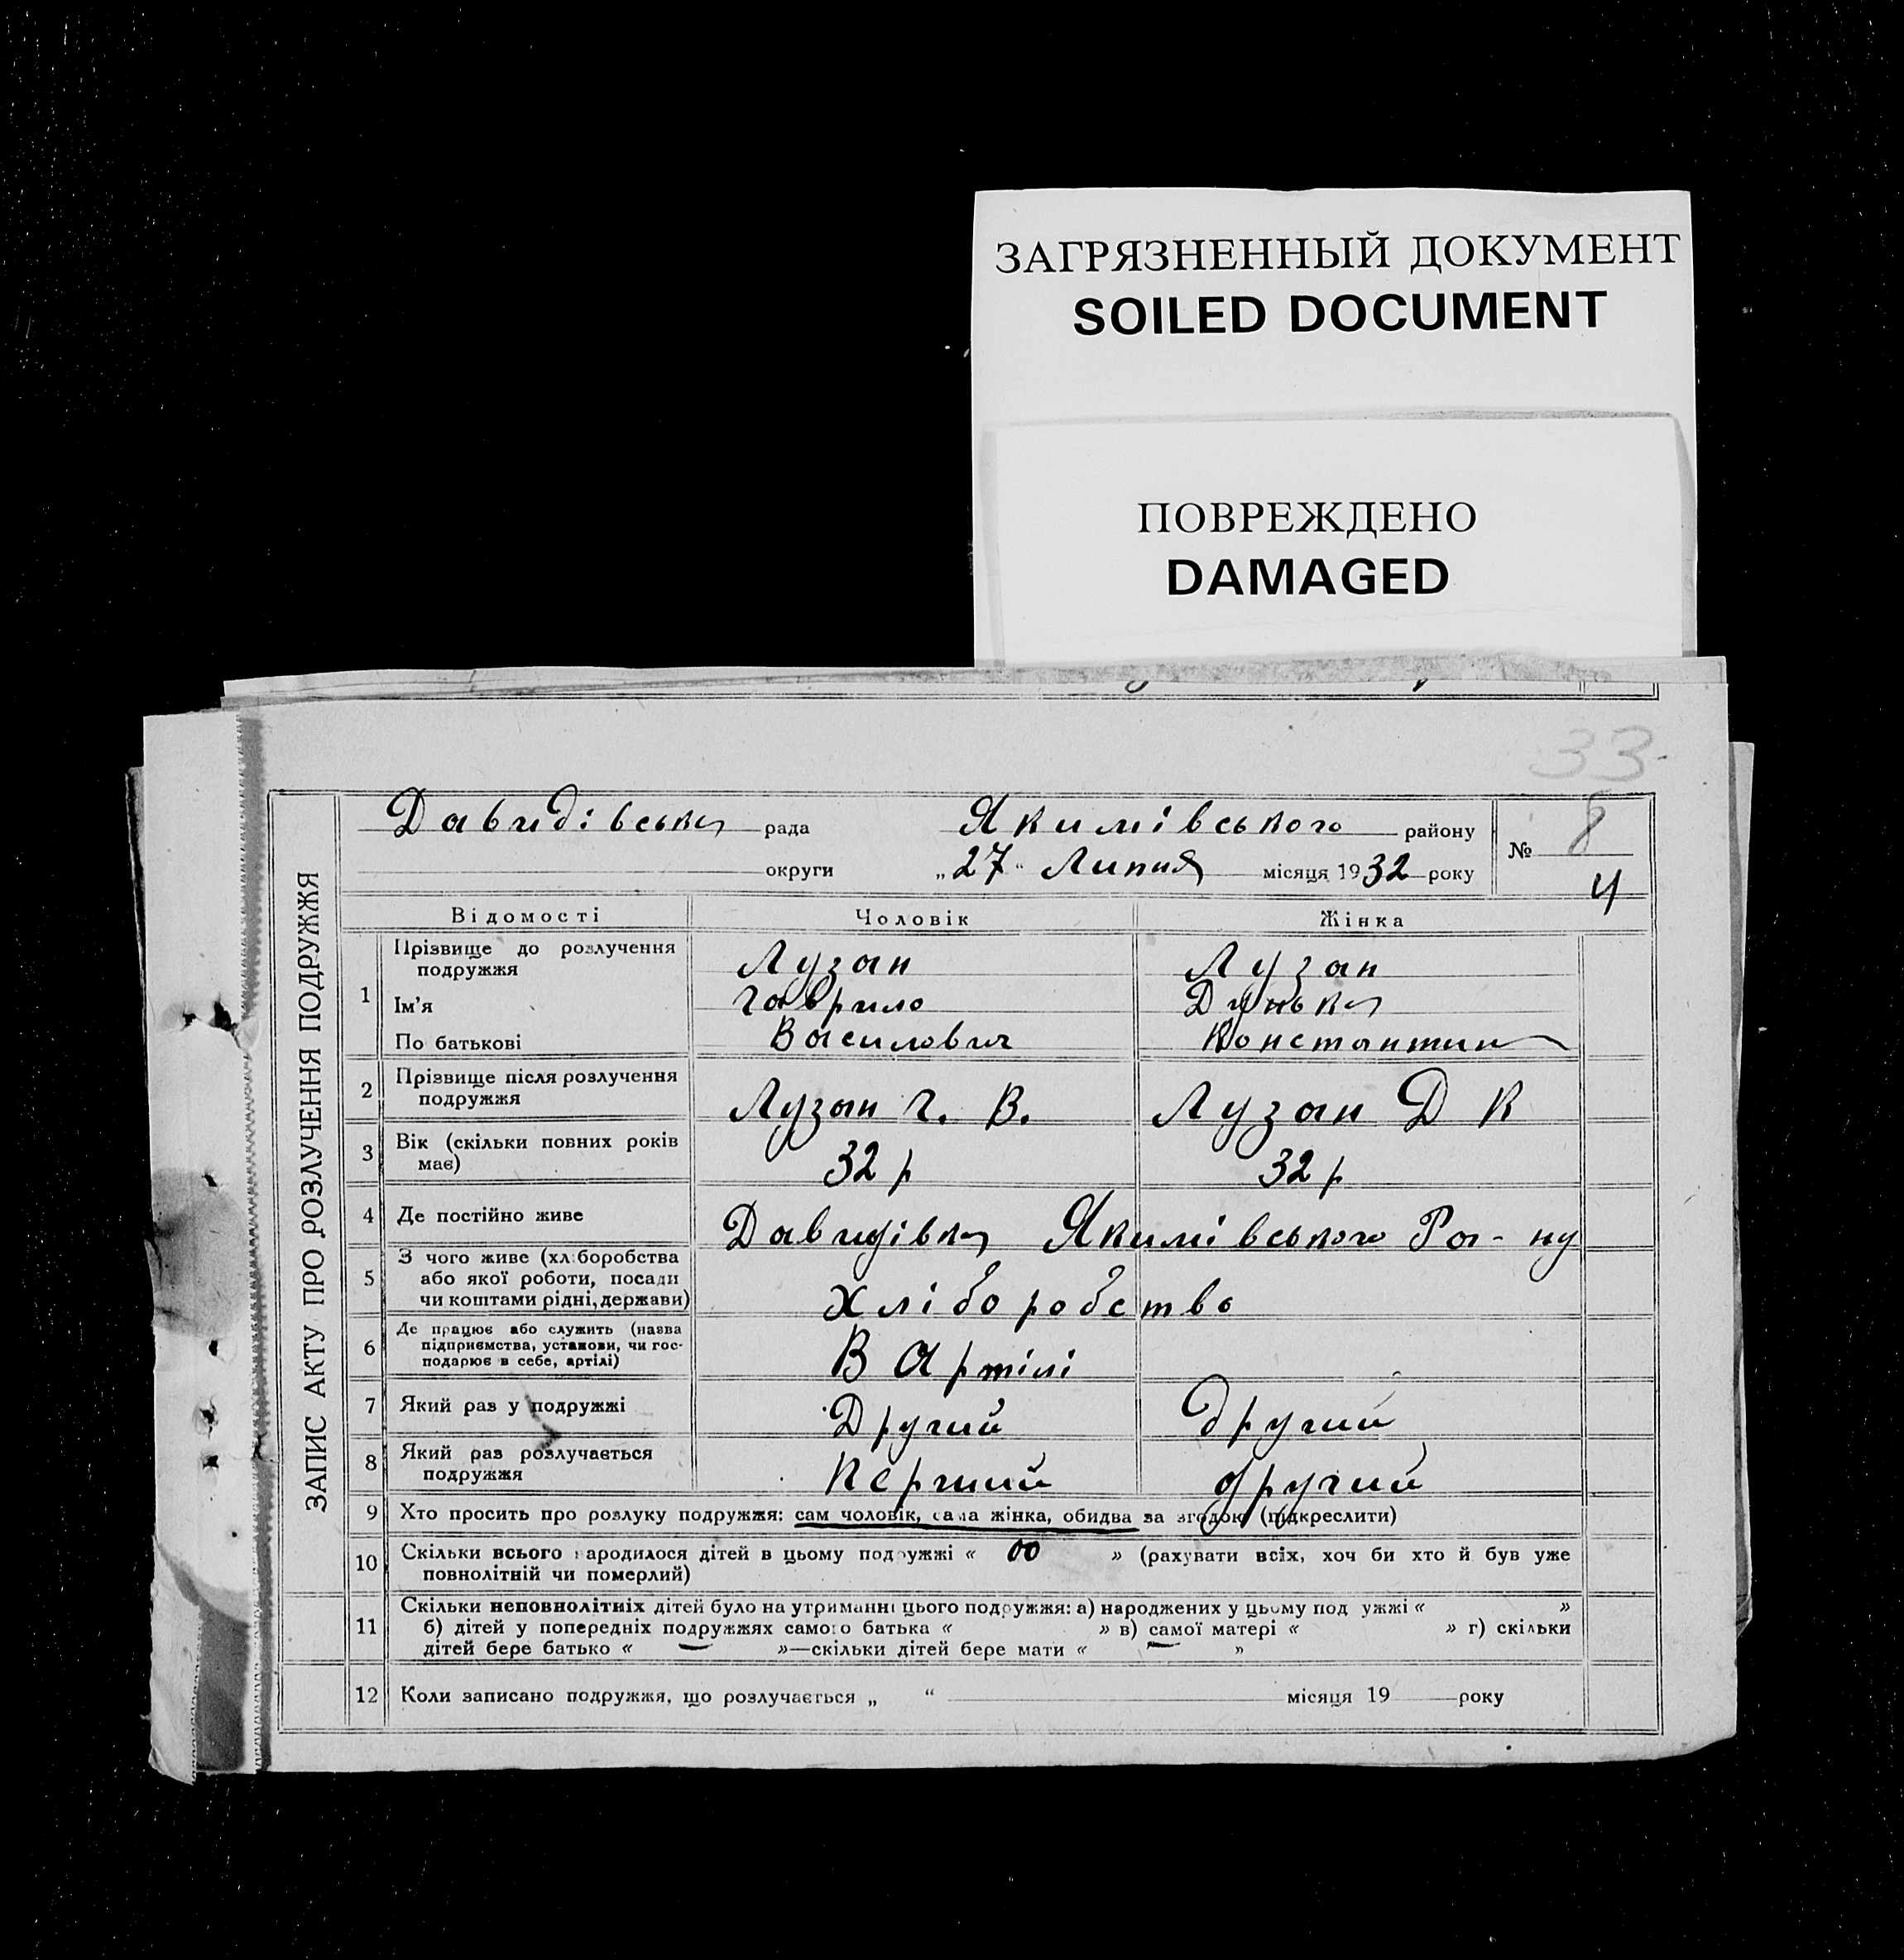 ЗАГРЯЗНЕННЫЙ ДОКУМЕНТ
SOILED DOCUMENT
ПОВРЕЖДЕНО
DAMAGED
33
ЗАПИС АКТУ ПРО РОЗЛУЧЕННЯ ПОДРУЖЖЯ
Давидівська рада Якимівського району № 8
округи „27“ Липня місяця 1932 року 4
Відомості Чоловік Жінка
1 Прізвище до розлучення подружжя Лузан Лузан
Ім'я Гаврило Дунька
По батькові Василович Константин
2 Прізвище після розлучення подружжя Лузан Г. В. Лузан Д К
3 Вік (скільки повних років має) 32 р 32 р
4 Де постійно живе Давидівка Якимівського Ра-ну
5 З чого живе (хліборобства або якої роботи, посади чи коштами рідні, держави) Хліборобство
6 Де працює або служить (назва підприємства, установи, чи господарює в себе, артілі) В Артілі
7 Який раз у подружжі Другий другий
8 Який раз розлучається подружжя Перший другий
9 Хто просить про розлуку подружжя: сам чоловік, сама жінка, обидва за згодою (підкреслити)
10 Скільки всього народилося дітей в цьому подружжі « 00 » (рахувати всіх, хоч би хто й був уже
повнолітній чи померлий)
11 Скільки неповнолітніх дітей було на утриманні цього подружжя: а) народжених у цьому подружжі « »
б) дітей у попередніх подружжях самого батька « » в) самої матері « » г) скільки
дітей бере батько « — »—скільки дітей бере мати « — »
12 Коли записано подружжя, що розлучається „ “ місяця 19 року